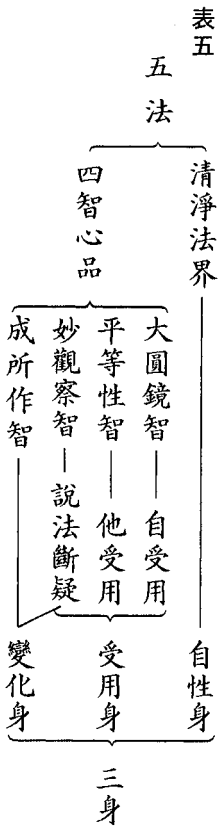 表五
五法
清淨法界
自性身
四智心品
大圓鏡智
自受用
平等性智
他受用
受用身
妙觀察智
說法斷疑
成所作智
變化身
三身